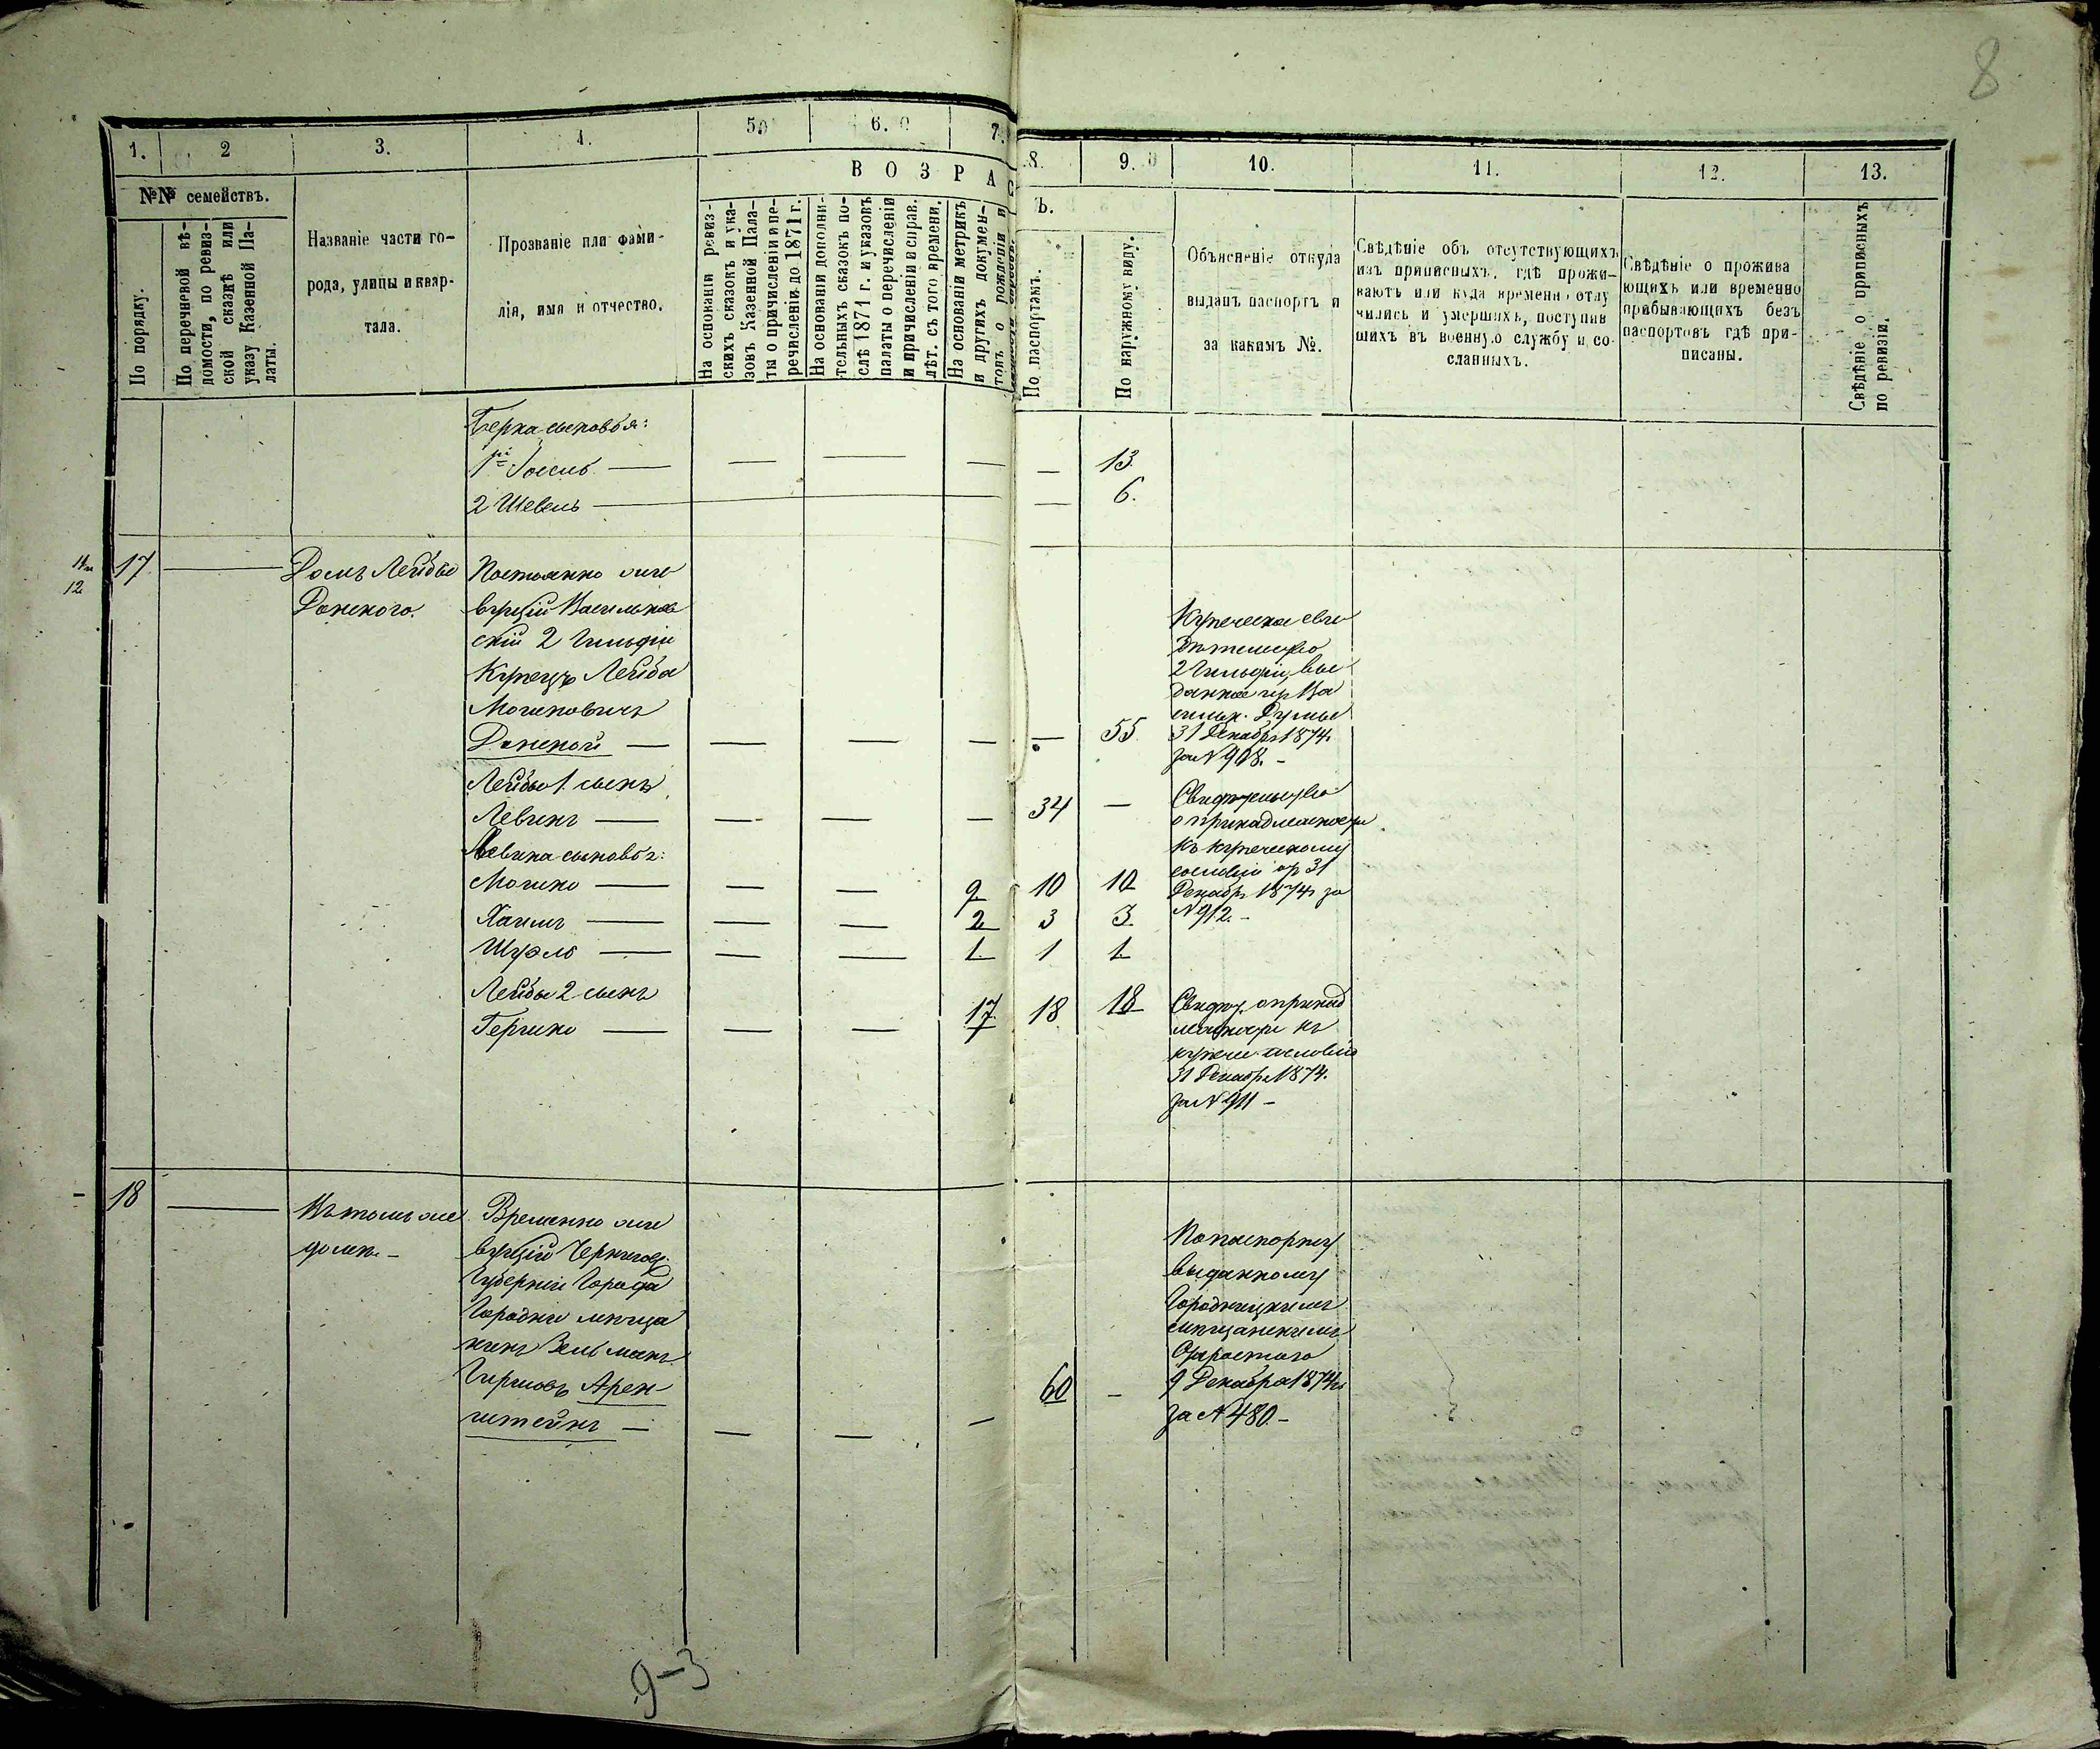 8
1. 2 3. 4. 5. 6. 7. 8. 9. 10. 11. 12. 13.
№№ семействъ.
По порядку.
По перечневой вѣ-
домости, по ревиз-
ской сказкѣ или
указу Казенной Па-
латы.
Названіе части го-
рода, улицы и квар-
тала.
Прозваніе или фами-
лія, имя и отчество.
ВОЗРАСТЪ.
На основаніи ревиз-
скихъ сказокъ и ука-
зовъ Казенной Пала-
ты о причисленіи и пе-
речисленіи до 1871 г.
На основаніи дополни-
тельныхъ сказокъ по-
слѣ 1871 г. и указовъ
палаты о перечисленіи
и причисленіи и справ.
лѣт. съ того времени.
На основаніи метрикъ
и другихъ докумен-
товъ о рожденіи и
По паспортамъ.
По наружному виду.
Объясненіе откуда
выданъ паспортъ и
за какимъ №.
Свѣдѣніе объ отсутствующихъ
изъ приписныхъ, гдѣ прожи-
ваютъ или куда временно отлу
чились и умершихъ, поступив
шихъ въ военную службу и со-
сланныхъ.
Свѣдѣніе о прожива
ющихъ или временно
прибывающихъ безъ
паспортовъ гдѣ при-
писаны.
Свѣдѣніе о приписныхъ
по ревизіи.
Берка сыновья:
1й Іосель — — — — — 13.
2 Шевель — — 6.
12
17 — Домъ Лейбы
Донского.
Постоянно жи
вущій Васильков
скій 2 Гильдіи
Купецъ Лейба
Мошковичъ
Донской — — — — — 55.
Купеческое сви
дѣтельство
2 Гильдіи, вы
данное изъ Ва
сильк. Думы
31 Декабря 1874.
за № 908. –
Лейбы 1. сынъ
Левинъ — — — — 34 —
Свидѣтельство
о принадлежности
къ купеческому
сословію отъ 31
Декабря 1874 за
№ 912. –
Левина сыновья:
Мошко — — — 9 10 10
Хаимъ — — — 2 3 3
Шуэль — — — 1. 1 1
Лейбы 2 сынъ
Гершко — — — 17 18 18
Свидѣт. о принад
лежности къ
купеч. сословію
31 Декабря 1874.
за № 911 –
– 18 — Въ томъ же
домѣ –
Временно жи
вущій Чернигов.
Губерніи Города
Городни мѣща
нинъ Зельманъ
Гиршовъ Арен
штейнъ — — — — 60 –
По паспорту
выданному
Городницкимъ
мѣщанскимъ
Старостою
9 Декабря 1874 г.
за № 480. –
9-3